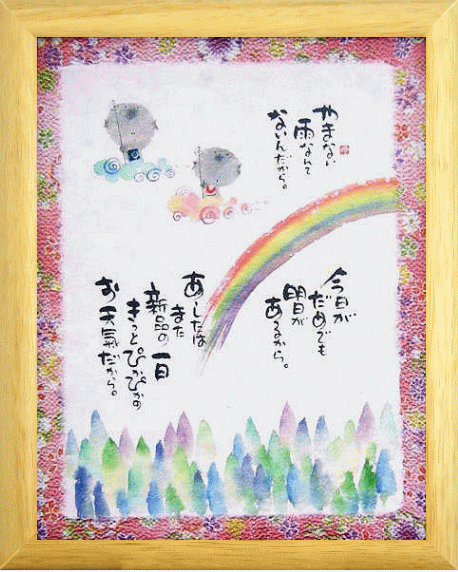 やまない
雨なんて
ないんだから。
今日が
だめでも
明日が
あるから。
あしたは
また
新品の一日
きっとぴかぴかの
お天氣だから。